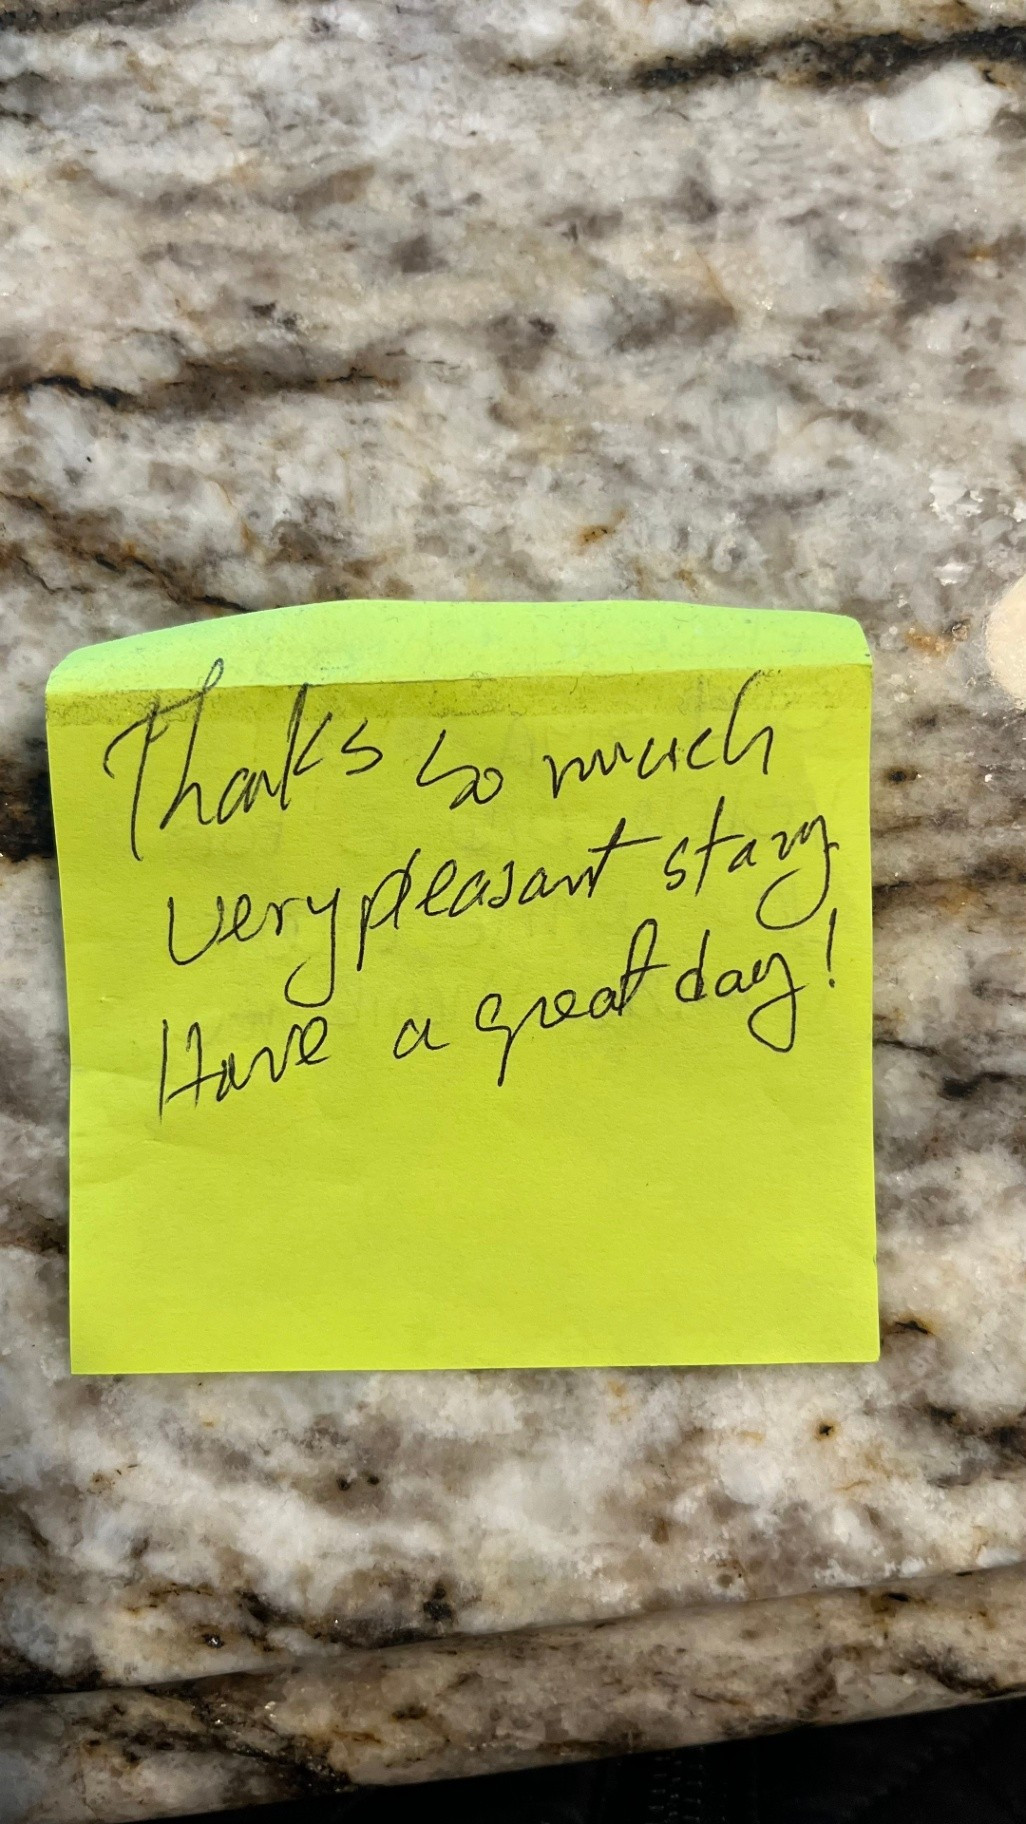 Thanks so much
very pleasant stay
Have a great day!